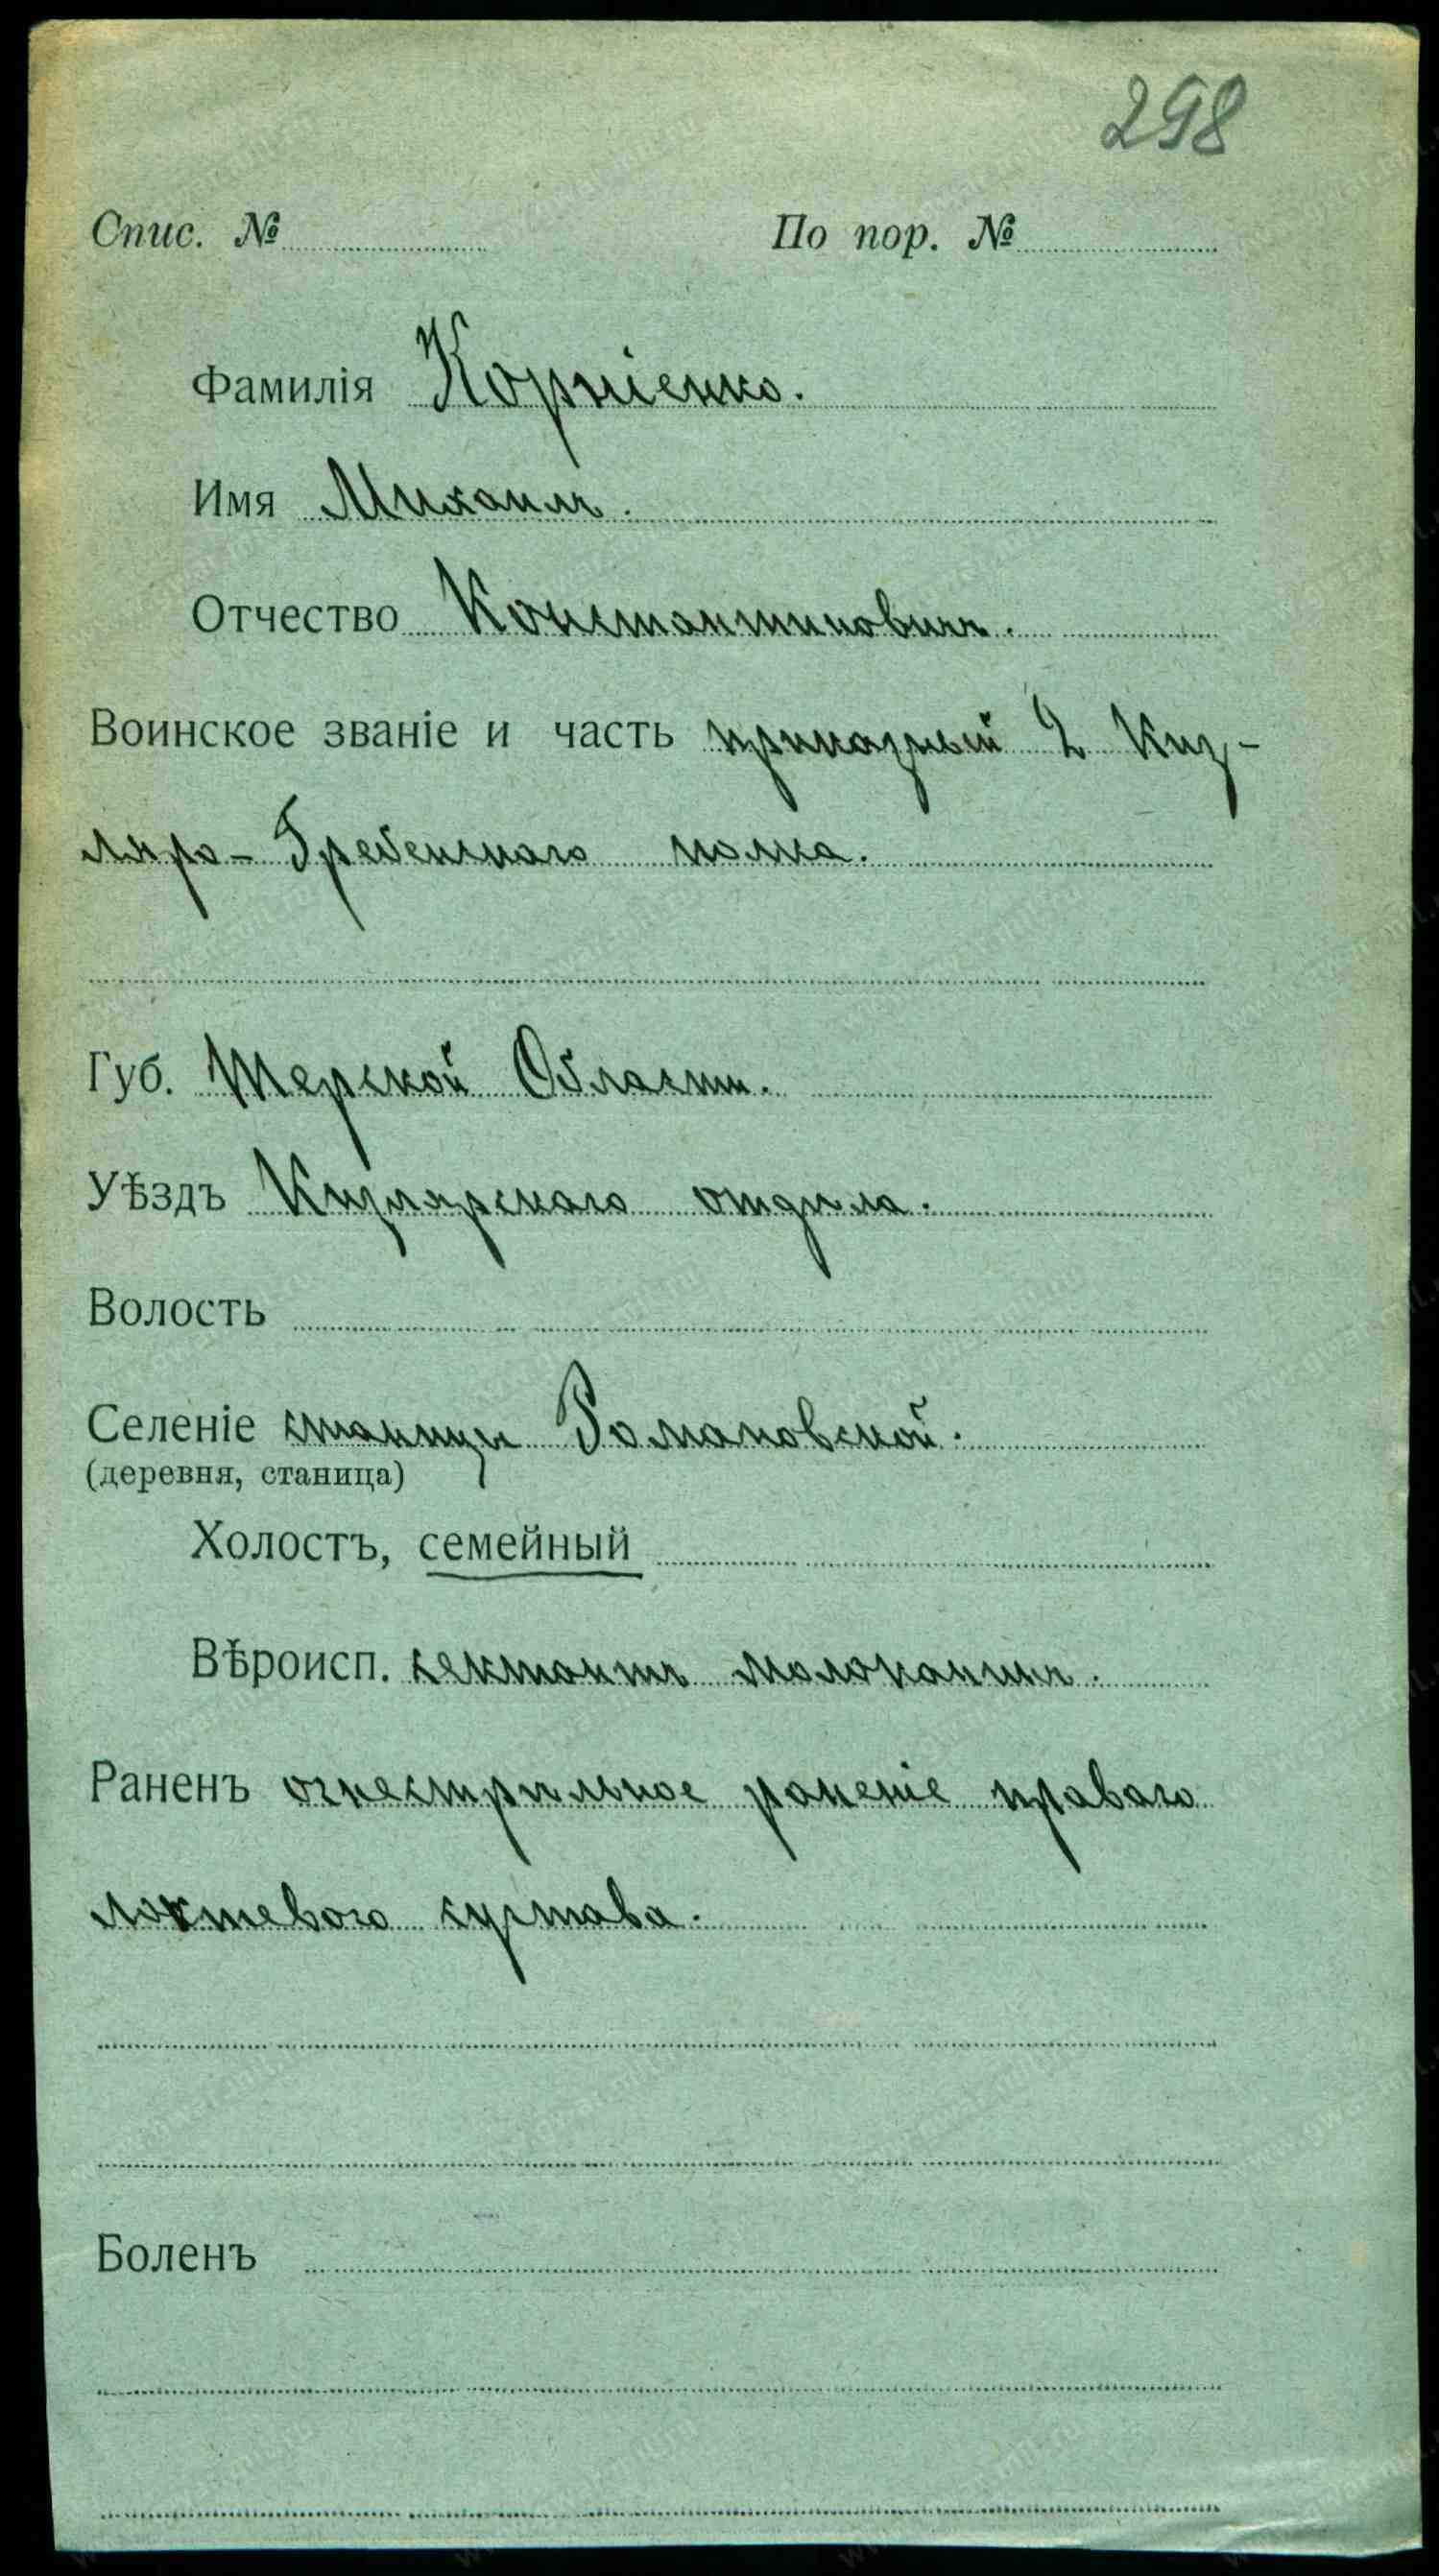 298
Спис. № По пор. №
Фамилія Корніенко.
Имя Михаилъ.
Отчество Константиновичъ.
Воинское званіе и часть приказный 2 Киз-
ляро-Гребенского полка.
Губ. Терской Области.
Уѣздъ Кизлярскаго отдѣла.
Волость
Селеніе станицы Романовской.
(деревня, станица)
Холостъ, семейный
Вѣроисп. сектантъ молоканинъ.
Раненъ огнестрѣльное раненіе праваго
локтевого сустава.
Боленъ